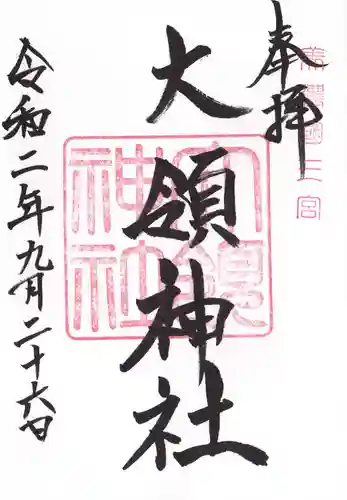 奉拝
美濃國三宮
大領神社
大領神社
令和二年九月二十六日